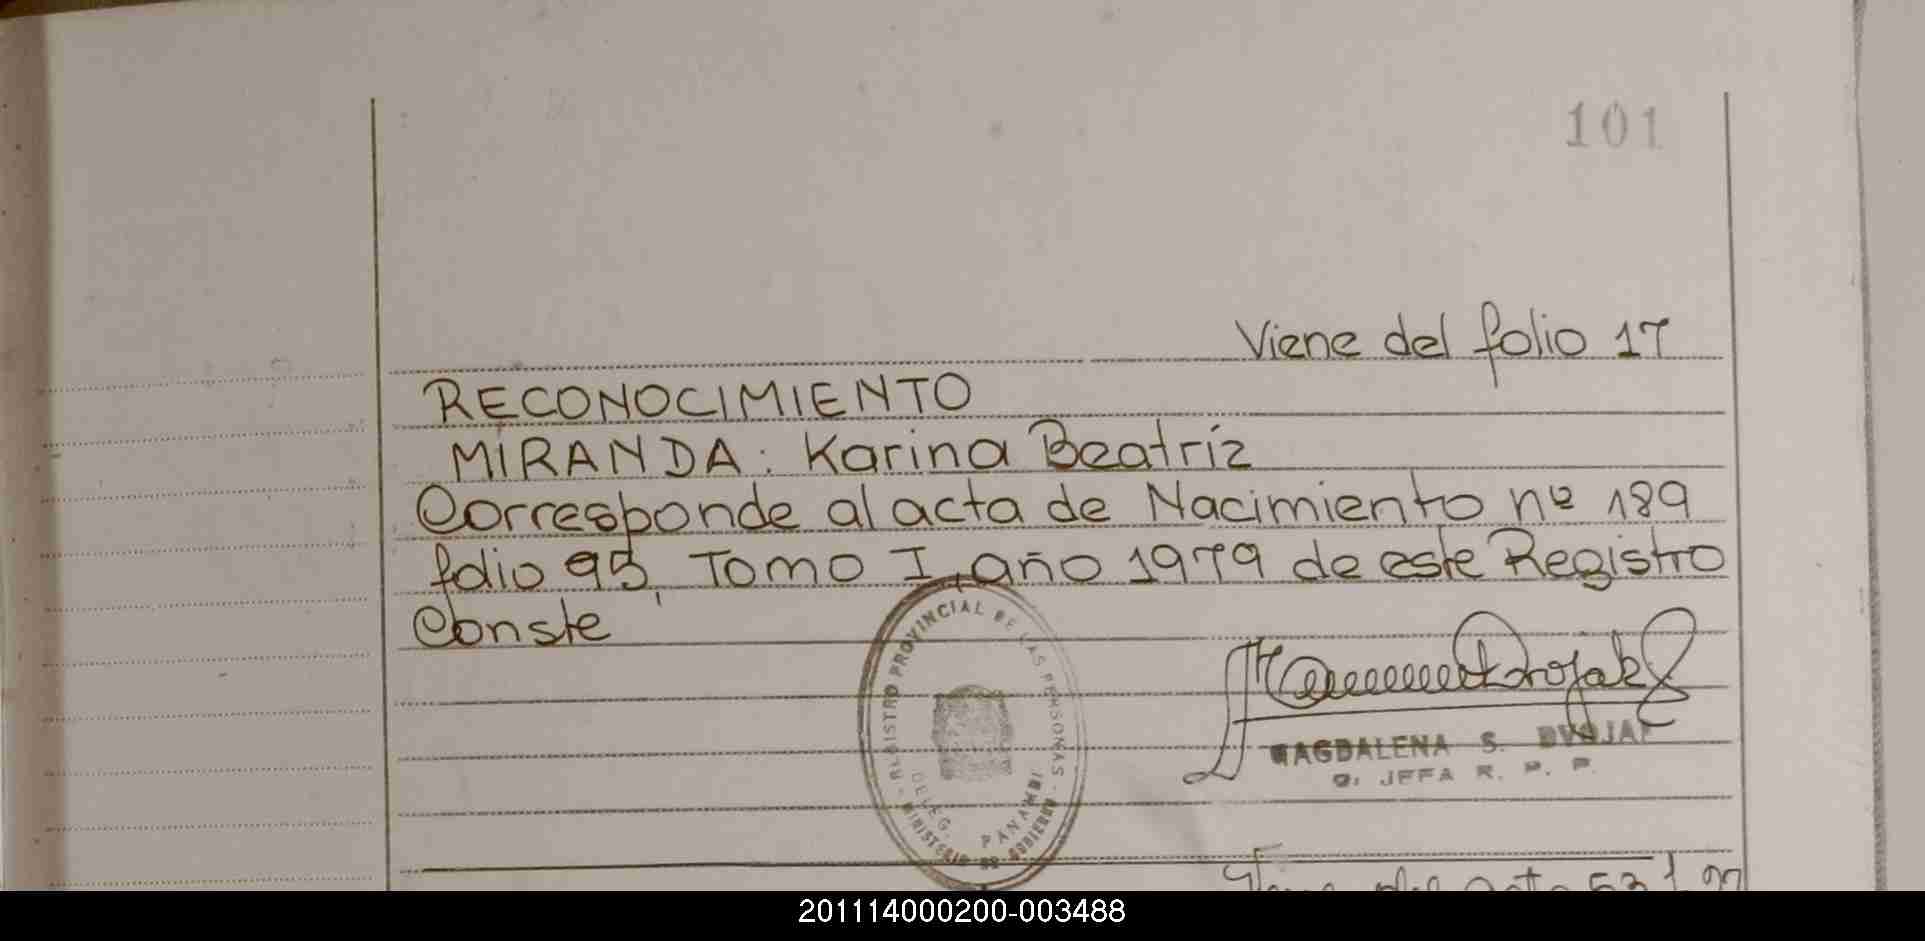 101
Viene del folio 17
RECONOCIMIENTO
MIRANDA: Karina Beatríz
Corresponde al acta de Nacimiento nº 189
folio 95, Tomo I, año 1979 de este Registro
Conste
REGISTRO PROVINCIAL DE LAS PERSONAS
MINISTERIO DE GOBIERNO
DELEG. PANAMBI
MAGDALENA S.
JEFA R. P. P.
201114000200-003488